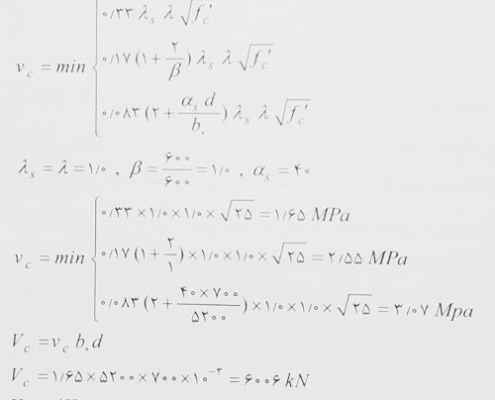 ۰/۳۳ λₛ λ √f′c
v_c = min { ۰/۱۷ (۱ + ۲/β) λₛ λ √f′c
۰/۰۸۳ (۲ + αₛ d / b۰) λₛ λ √f′c
λₛ = λ = ۱/۰ , β = ۶۰۰/۶۰۰ = ۱/۰ , αₛ = ۴۰
۰/۳۳ × ۱/۰ × ۱/۰ × √۲۵ = ۱/۶۵ MPa
v_c = min { ۰/۱۷ (۱ + ۲/۱) × ۱/۰ × ۱/۰ × √۲۵ = ۲/۵۵ MPa
۰/۰۸۳ (۲ + ۴۰ × ۷۰۰ / ۵۲۰۰) × ۱/۰ × ۱/۰ × √۲۵ = ۳/۰۷ Mpa
V_c = v_c b۰ d
V_c = ۱/۶۵ × ۵۲۰۰ × ۷۰۰ × ۱۰⁻۳ = ۶۰۰۶ kN